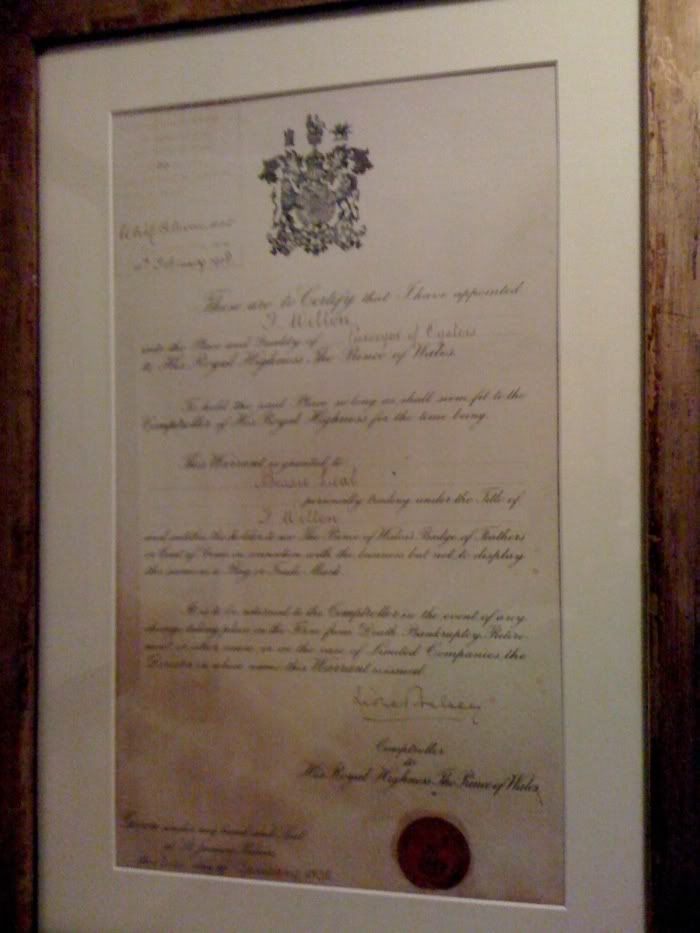 These are to Certify that I have appointed
into the Place and Quality of Purveyor of Oysters
to His Royal Highness The Prince of Wales.
To hold the said Place so long as shall seem fit to the
Comptroller of His Royal Highness for the time being.
This Warrant is granted to
Bessie Leal
personally trading under the Title of
and entitles the holder to use The Prince of Wales's Badge of Feathers
or Coat of Arms in connection with the business but not to display
the same as a Flag or Trade Mark.
It is to be returned to the Comptroller in the event of any
change taking place in the Firm from Death, Bankruptcy, Retire-
ment or other cause, or in the case of Limited Companies the
Director in whose name this Warrant is issued.
Lionel Halsey
Comptroller
to
His Royal Highness The Prince of Wales.
Given under my hand and Seal
at St. James's Palace,
day of